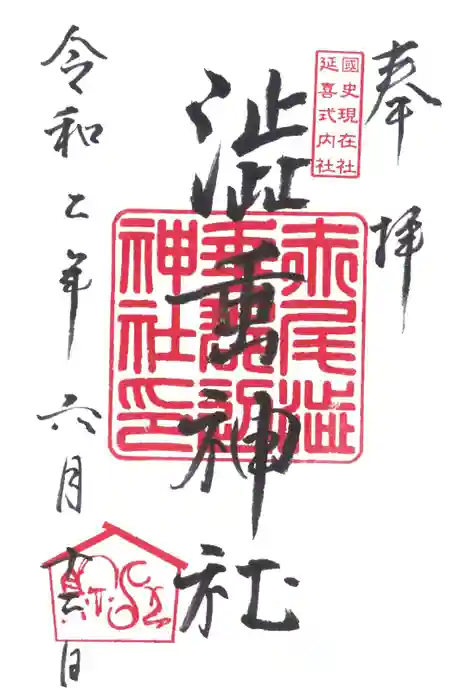 奉拝
國史現在社
延喜式内社
澁垂神社
赤尾澁
垂郡辺
神社印
令和二年六月
日